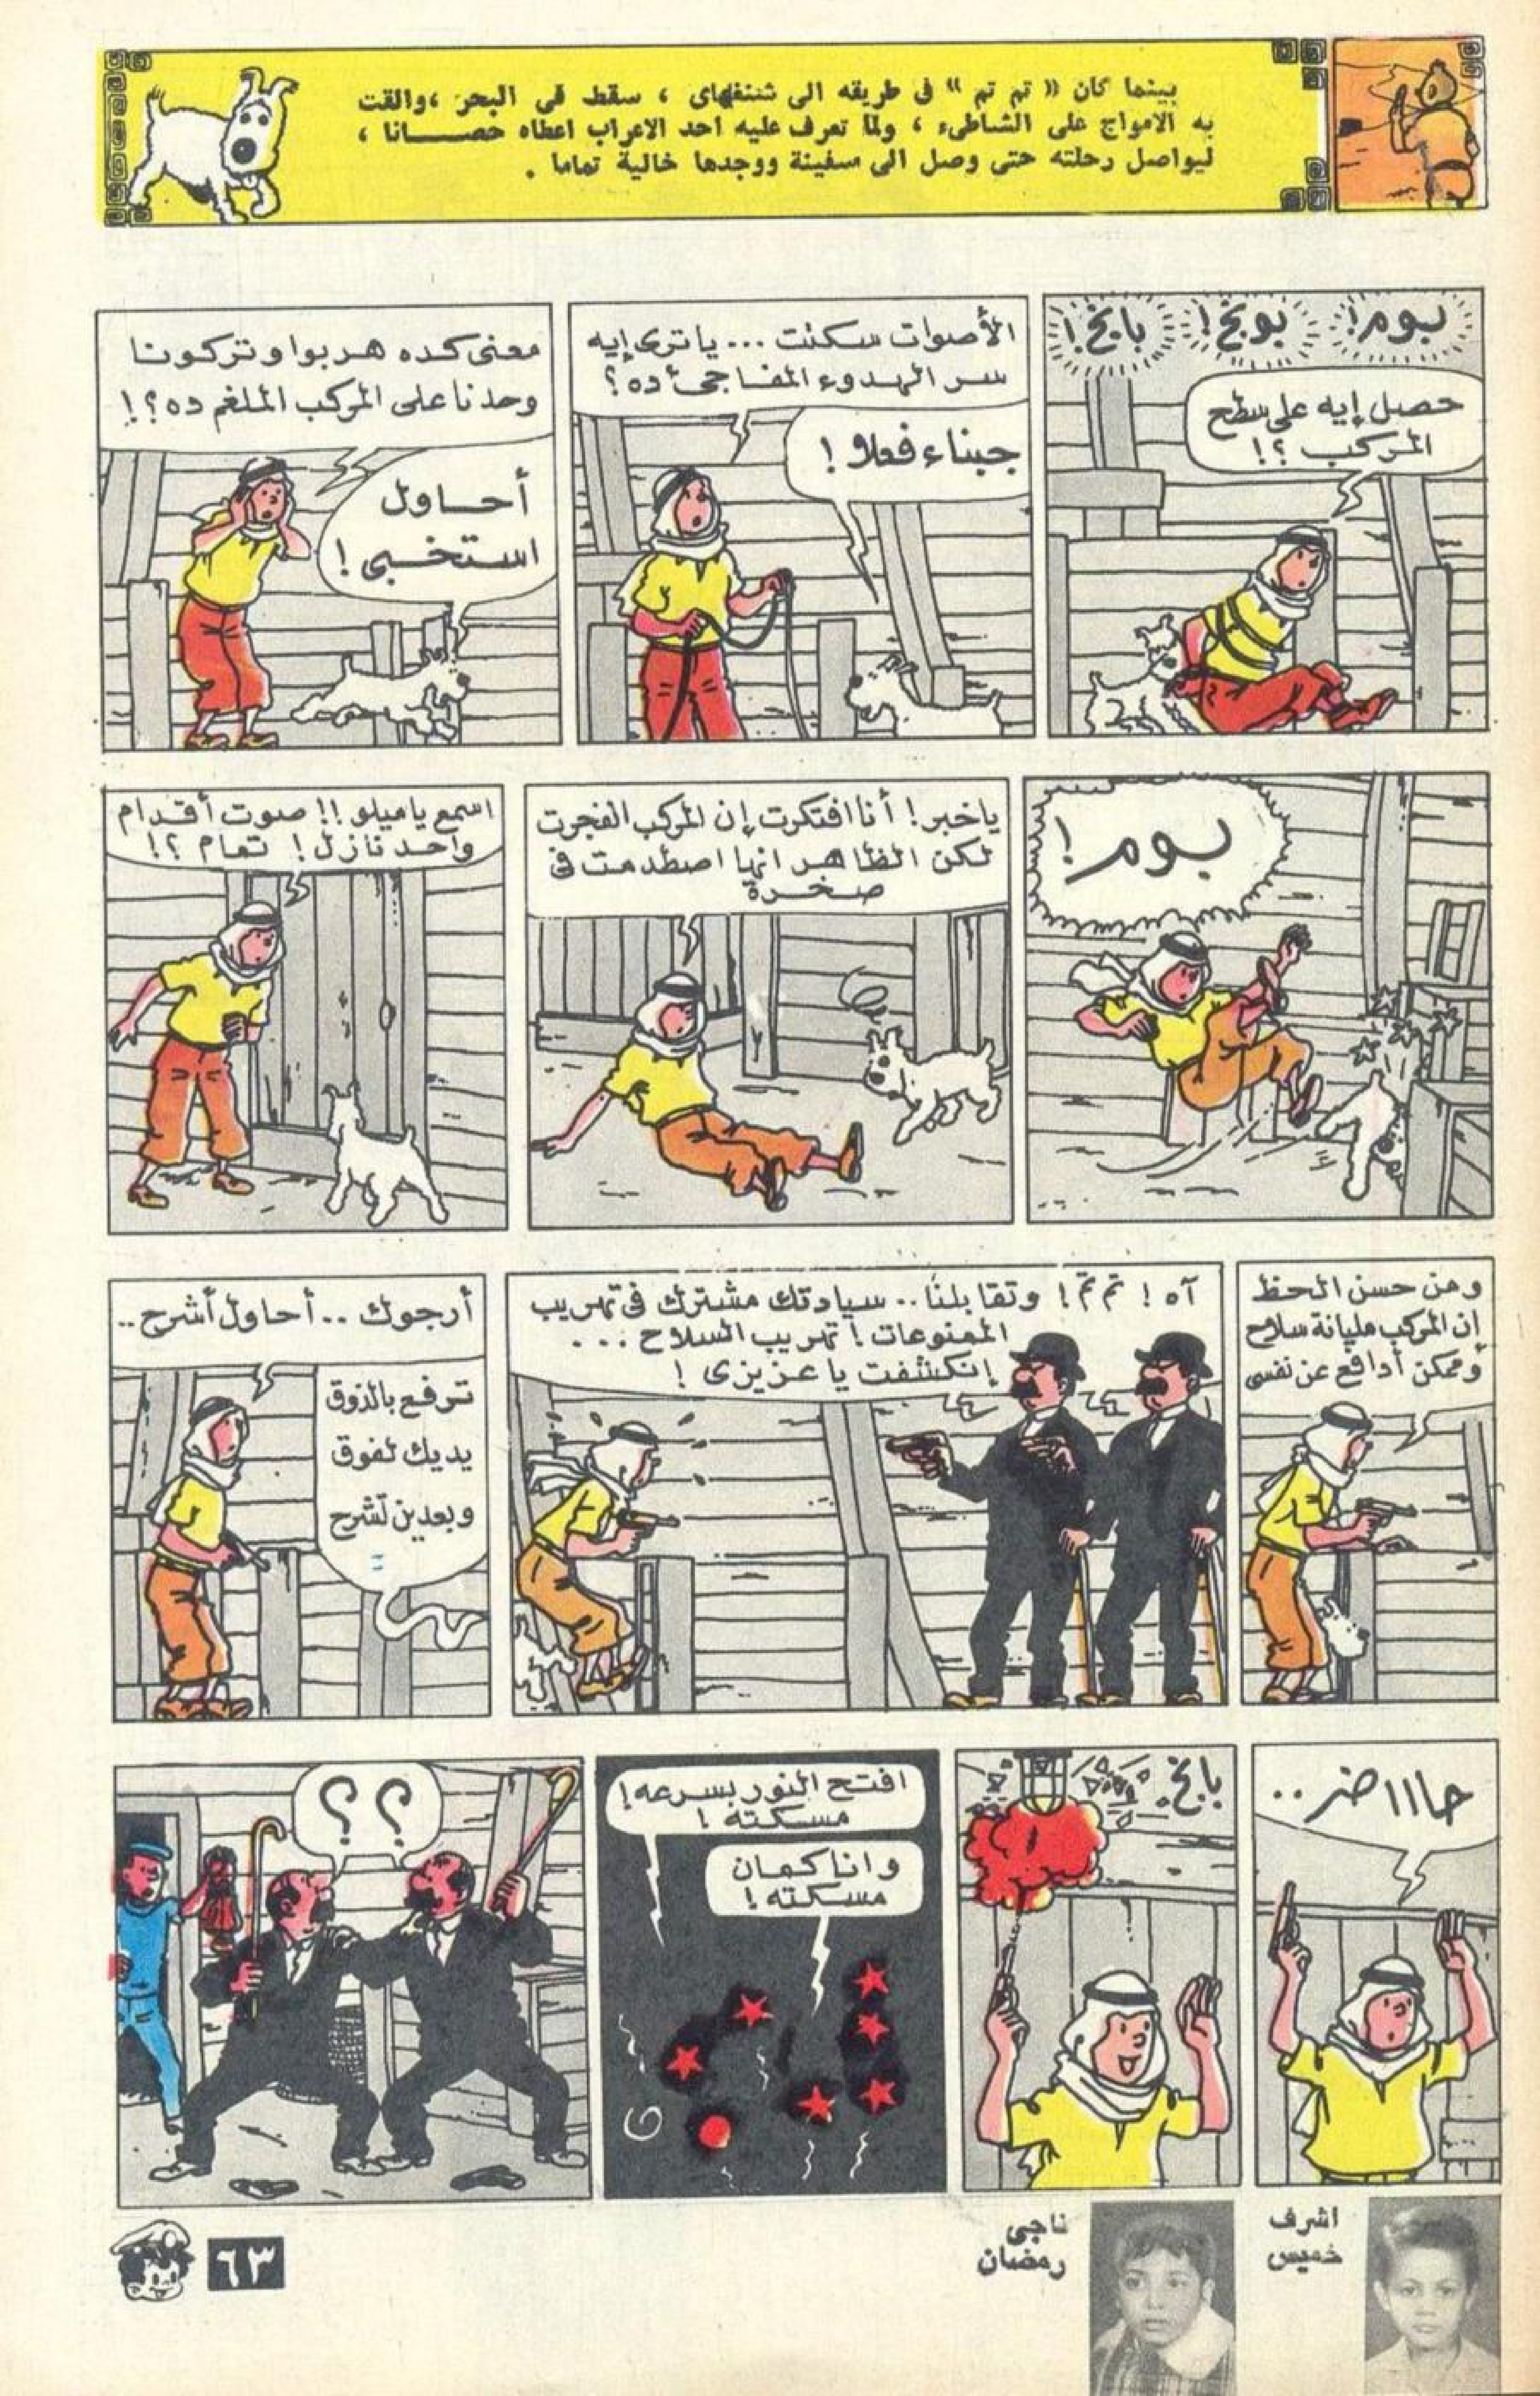 بينما كان « تم تم » فى طريقه الى شنغهاى ، سقط فى البحر ، والقت
به الامواج على الشاطىء ، ولما تعرف عليه احد الاعراب اعطاه حصـــانا ،
ليواصل رحلته حتى وصل الى سفينة ووجدها خالية تماما .
بوم !
بوبخ !
بابخ !
حصل إيه على سطح
المركب ؟!
الأصوات سكتت ... يا ترى إيه
سر الهدوء المفاجىء ده ؟
جبناء فعلا !
معنى كده هربوا وتركونا
وحدنا على المركب الملغم ده ؟!
أحـــاول
استخـــبى !
بوم !
يا خبر ! أنا افتكرت إن المركب انفجرت
لكن الظاهر انها اصطدمت فى
صخرة
اسمع يا ميلو !! صوت أقدام
واحد نازل ! تمام ؟!
ومن حسن الحظ
ان المركب مليانة سلاح
وممكن أدافع عن نفسى
آه ! تم تم ! وتقابلنا .. سيادتك مشترك فى تهريب
الممنوعات ! تهريب السلاح ...
إنكشفت يا عزيزى !
أرجوك .. أحاول أشرح ..
ترفع بالذوق
يديك لفوق
وبعدين تشرح
حااا ضر ..
بابخ .
افتح النور بسرعه !
مسكته !
وانا كمان
مسكته !
؟ ؟
اشرف
خميس
ناجى
رمضان
٦٣